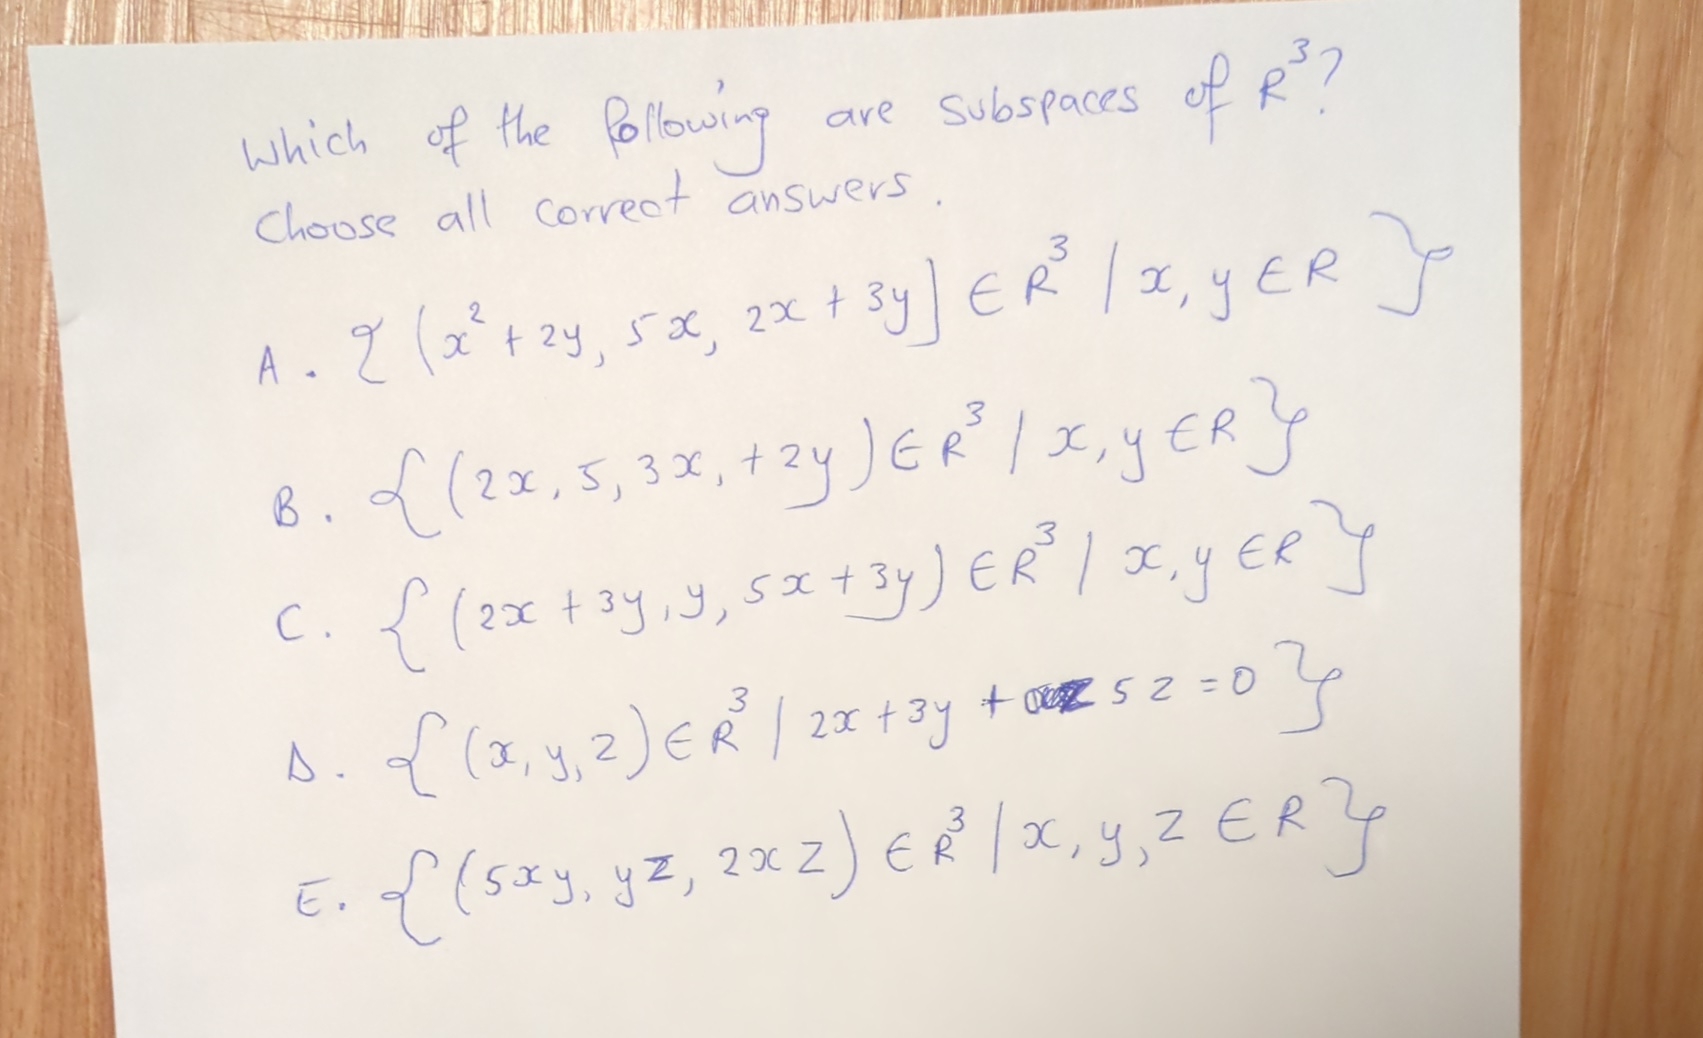 Which of the following are subspaces of R³?
Choose all correct answers.
A. {(x²+2y, 5x, 2x+3y] ∈ R³ | x, y ∈ R }
B. {(2x, 5, 3x, +2y) ∈ R³ | x, y ∈ R}
C. {(2x+3y, y, 5x+3y) ∈ R³ | x, y ∈ R}
D. {(x, y, z) ∈ R³ | 2x+3y + 5z = 0}
E. {(5xy, yz, 2xz) ∈ R³ | x, y, z ∈ R}